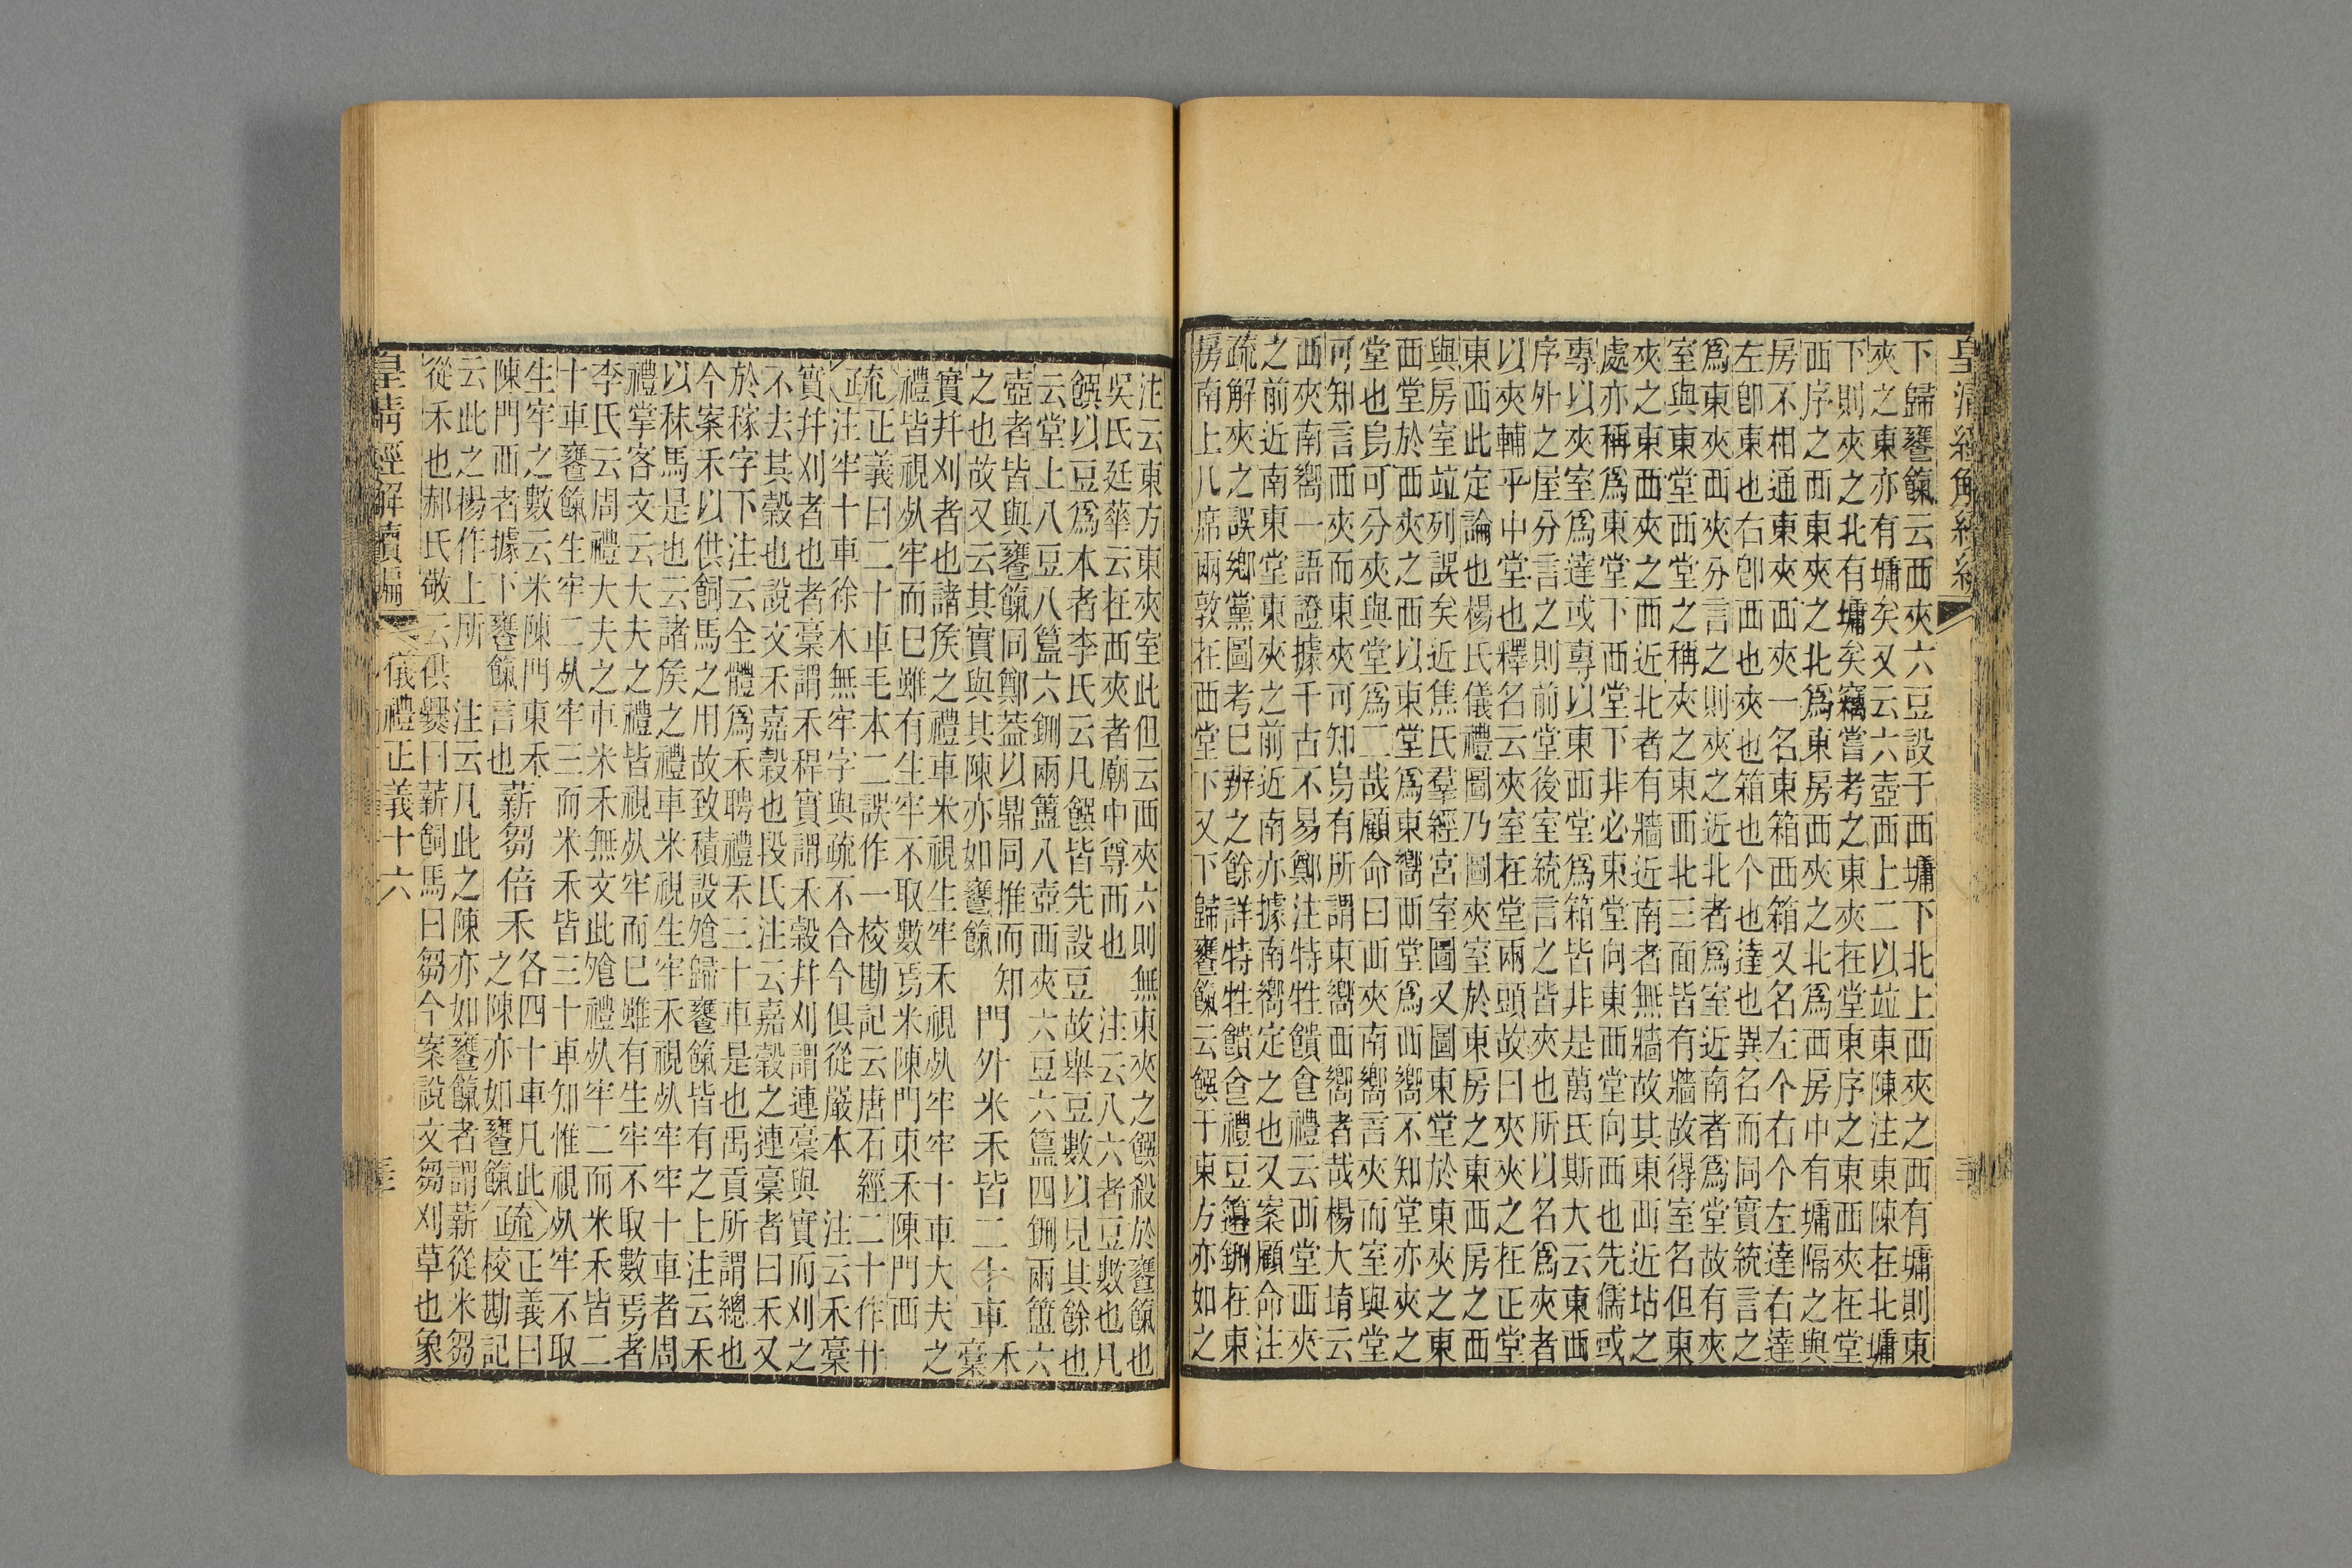 皇清經解續編
下歸饔餼云西夾六豆設于西墉下北上西夾之西有墉則東
夾之東亦有墉矣又云六壺西上二以竝東陳注東陳在北墉
下則夾之北有墉矣竊嘗考之東夾在堂東序之東西夾在堂
西序之西東夾之北爲東房西夾之北爲西房中有墉隔之與
房不相通東夾西夾一名東箱西箱又名左个右个左達右達
左卽東也右卽西也夾也箱也个也達也異名而同實統言之
爲東夾西夾分言之則夾之近北者爲室近南者爲堂故有夾
室與東堂西堂之稱夾之東西北三面皆有牆故得室名但東
夾之東西夾之西近北者有牆近南者無牆故其東西近坫之
處亦稱爲東堂下西堂下非必東堂向東西堂向西也先儒或
專以夾室爲達或專以東西堂爲箱皆非是萬氏斯大云東西
序外之屋分言之則前堂後室統言之皆夾也所以名爲夾者
以夾輔乎中堂也釋名云夾室在堂兩頭故曰夾夾之在正堂
東西此定論也楊氏儀禮圖乃圖夾室於東房之東西房之西
與房室竝列誤矣近焦氏羣經宮室圖又圖東堂於東夾之東
西堂於西夾之西以東堂爲東嚮西堂爲西嚮不知堂亦夾之
堂也烏可分夾與堂爲二哉顧命曰西夾南嚮言夾而室與堂
可知言西夾而東夾可知烏有所謂東嚮西嚮者哉楊大堉云
西夾南嚮一語證據千古不易鄭注特牲饋食禮云西堂西夾
之前近南東堂東夾之前近南亦據南嚮定之也又案顧命注
疏解夾之誤鄉黨圖考已辨之餘詳特牲饋食禮豆籩鉶在東
房南上几席兩敦在西堂下又下歸饔餼云饌于東方亦如之
注云東方東夾室此但云西夾六則無東夾之饌殺於饔餼也
吳氏廷華云在西夾者廟中尊西也　注云八六者豆數也凡
饌以豆爲本者李氏云凡饌皆先設豆故舉豆數以見其餘也
云堂上八豆八簋六鉶兩簠八壺西夾六豆六簋四鉶兩簠六
壺者皆與饔餼同鄭葢以鼎同推而知
之也故又云其實與其陳亦如饔餼
門外米禾皆二十車
禾
稾
實幷刈者也諸侯之禮車米視生牢禾視死牢牢十車大夫之
禮皆視死牢而已雖有生牢不取數焉米陳門東禾陳門西
疏
正義曰二十車毛本二誤作一校勘記云唐石經二十作廿
注牢十車徐本無牢字與疏不合今俱從嚴本　注云禾稾
實幷刈者也者稾謂禾稈實謂禾穀幷刈謂連稾與實而刈之
不去其穀也說文禾嘉穀也段氏注云嘉穀之連稾者曰禾又
於稼字下注云全體爲禾聘禮禾三十車是也禹貢所謂總也
今案禾以供飼馬之用故致積設飧歸饔餼皆有之上注云禾
以秣馬是也云諸侯之禮車米視生牢禾視死牢牢十車者周
禮掌客文云大夫之禮皆視死牢而已雖有生牢不取數焉者
李氏云周禮大夫之車米禾無文此飧禮死牢二而米禾皆二
十車饔餼生牢二死牢三而米禾皆三十車知惟視死牢不取
生牢之數云米陳門東禾
陳門西者據下饔餼言也
薪芻倍禾
各四十車凡此
之陳亦如饔餼
疏
正義曰
校勘記
云此之楊作上所　注云凡此之陳亦如饔餼者謂薪從米芻
從禾也郝氏敬云供爨曰薪飼馬曰芻今案說文芻刈草也象
皇清經解續編　儀禮正義十六